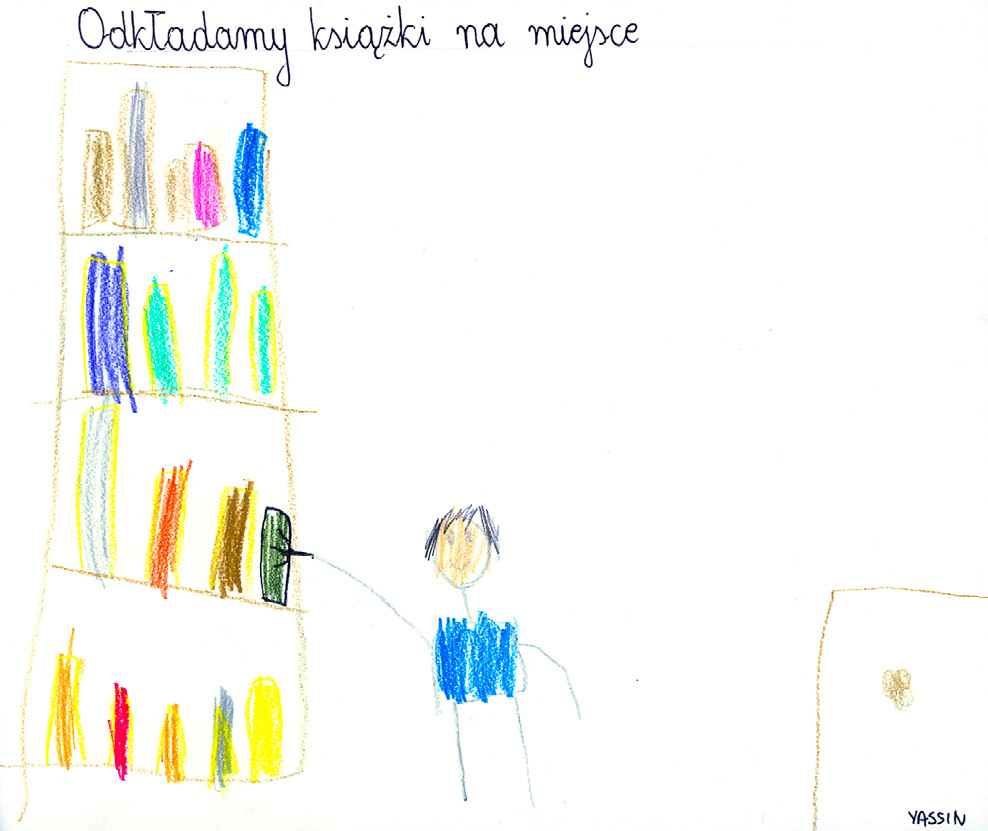 Odkładamy książki na miejsce
YASSIN